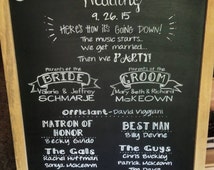 Wedding
9.26.15
HERE'S HOW IT'S GOING DOWN!
The music starts...
we get married...
Then we PARTY!
Parents of the
BRIDE
Valerie & Jeffrey
SCHMARJE
Parents of the
GROOM
Mary Beth & Richard
McKEOWN
Officiant - David Viggiani
MATRON OF
HONOR
Becky Guido
The Gals
Rachel Huffman
Sonya McKeown
BEST MAN
Billy Devine
The Guys
Chris Buckley
Patrick McKeown
Tim